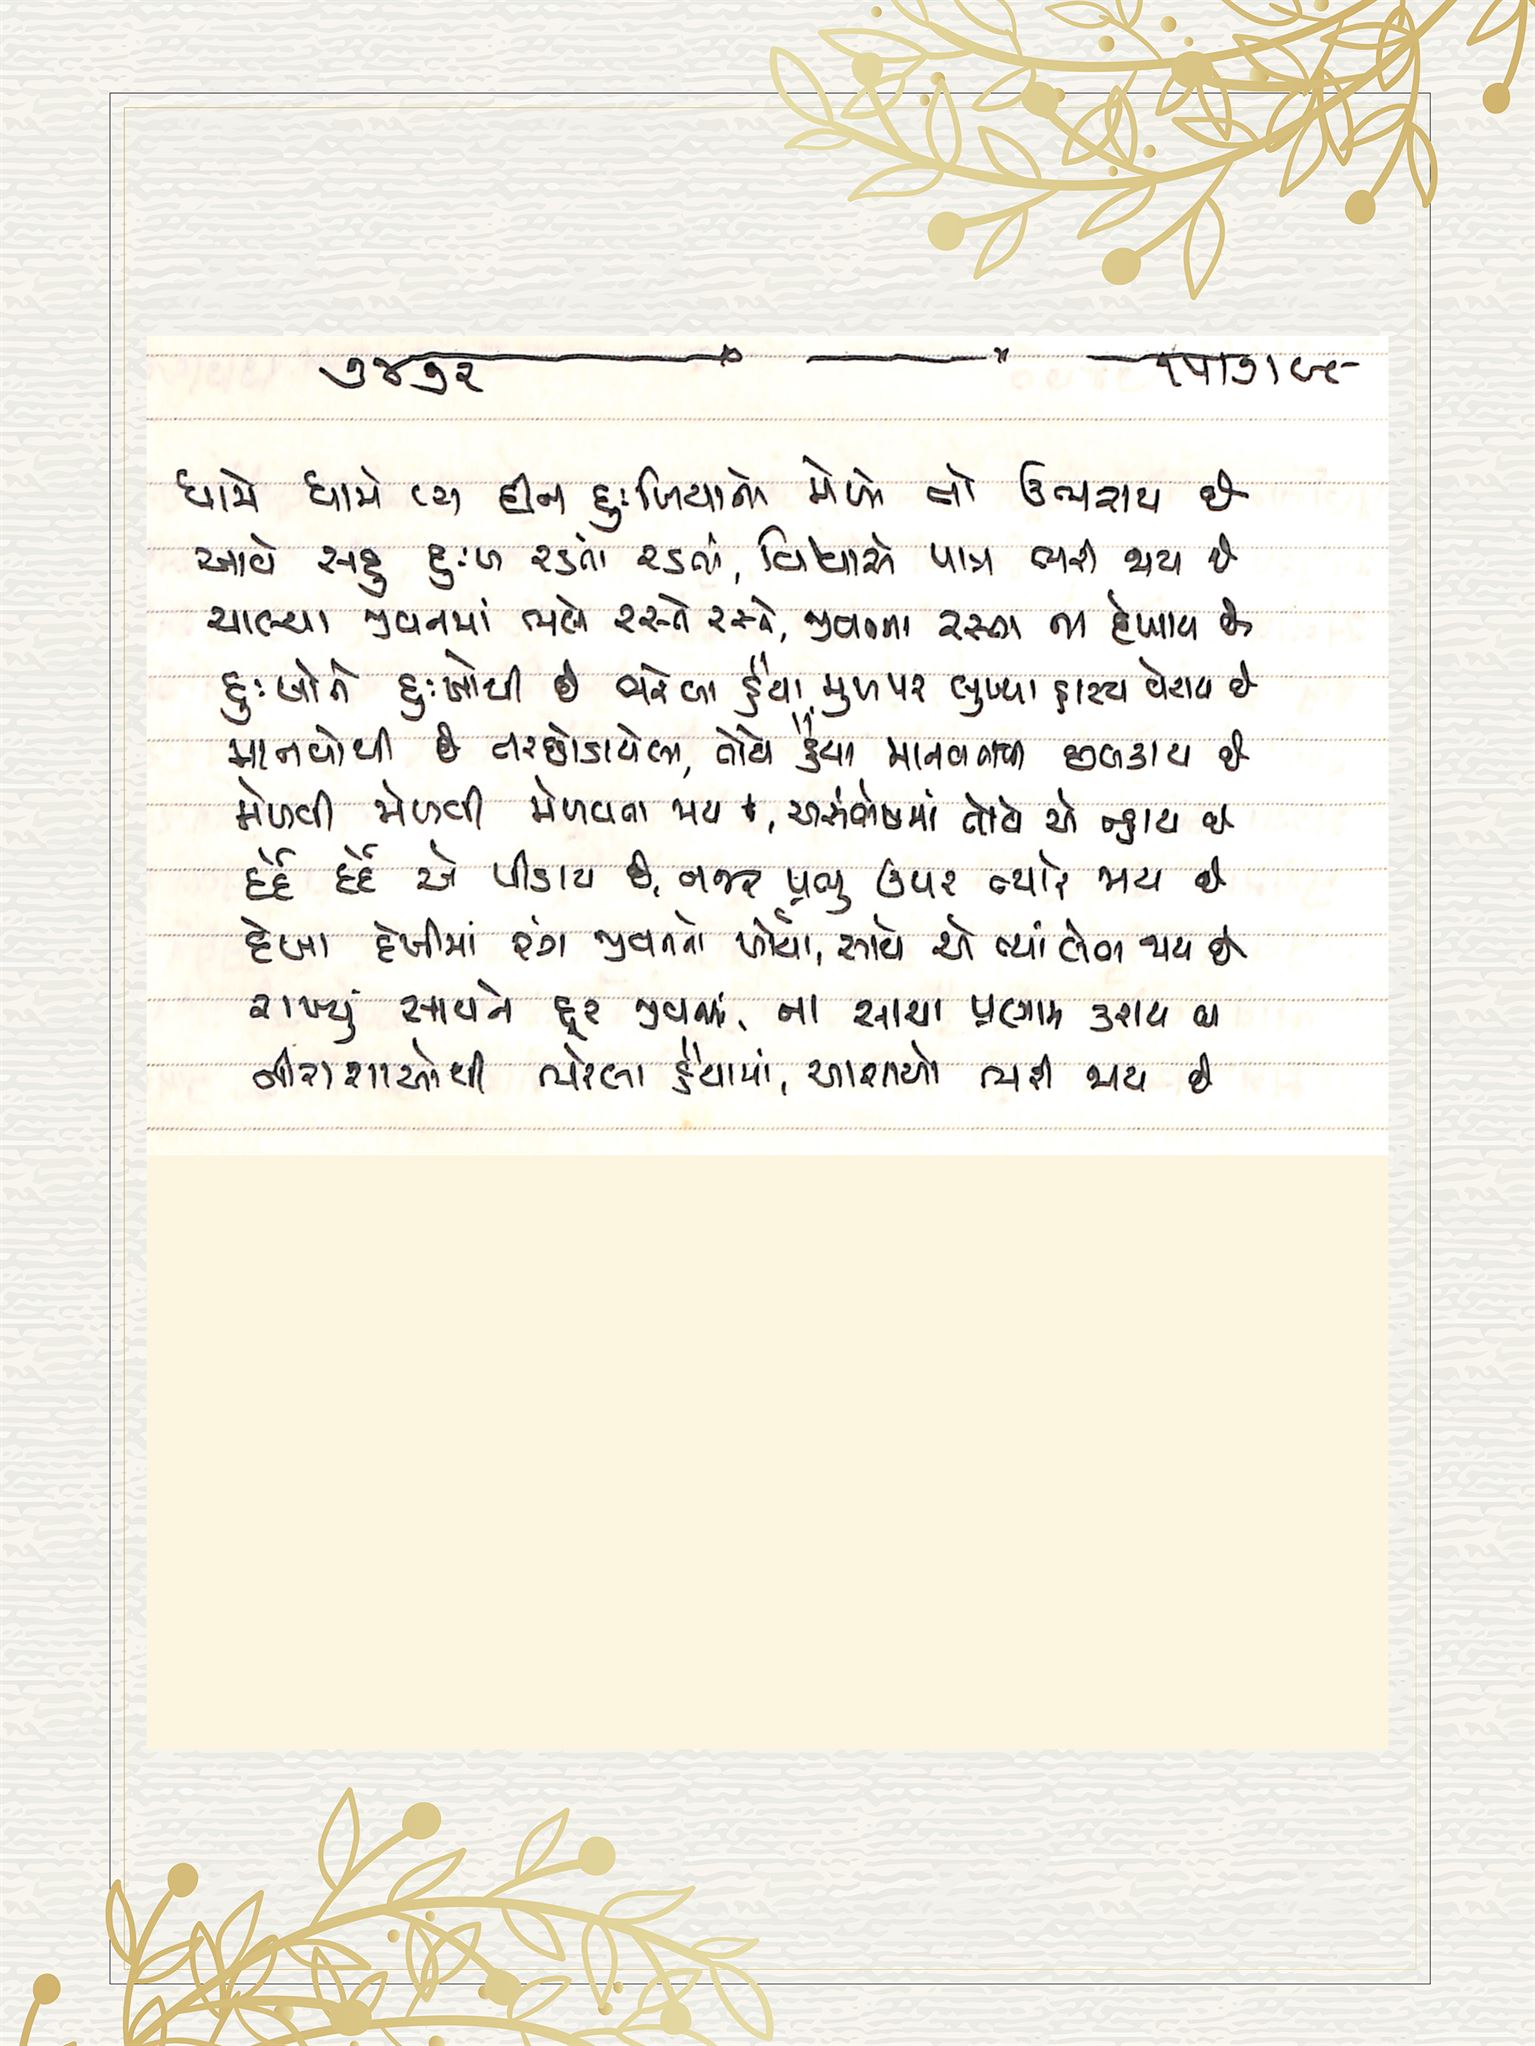 ૭૪૭૨ ૧૫।૭।૯૮
ધામે ધામે તો દીન દુઃખિયાનો મેળો તો ઉભરાય છે
આવે સહુ દુઃખ રડતાં રડતાં, વિશ્વાસે પાત્ર ભરી જાય છે
ચાલ્યા જીવનમાં ભલે રસ્તે રસ્તે, જીવનના રસ્તા ના દેખાય છે
દુઃખોને દુઃખોથી છે ભરેલા હૈયાં, મુખ પર લુખ્ખા હાસ્ય વેરાય છે
માનવોથી છે તરછોડાયેલા, તોયે હૈયા માનવતાથી છલકાય છે
મેળવી મેળવી મેળવતા જાય, અસંતોષમાં તોયે એ ન્હાય છે
દર્દે દર્દે એ પીડાય છે, નજર પ્રભુ ઉપર ત્યારે જાય છે
દેખા દેખીમાં રંગ જીવનનો ખોયો, સાચે એ ત્યાં લેવા જાય છે
રાખ્યું સત્યને દૂર જીવનમાં, ના સાચા પ્રણામ કરાય છે
નીરાશાઓથી ભરેલા હૈયામાં, આશાઓ ભરી જાય છે